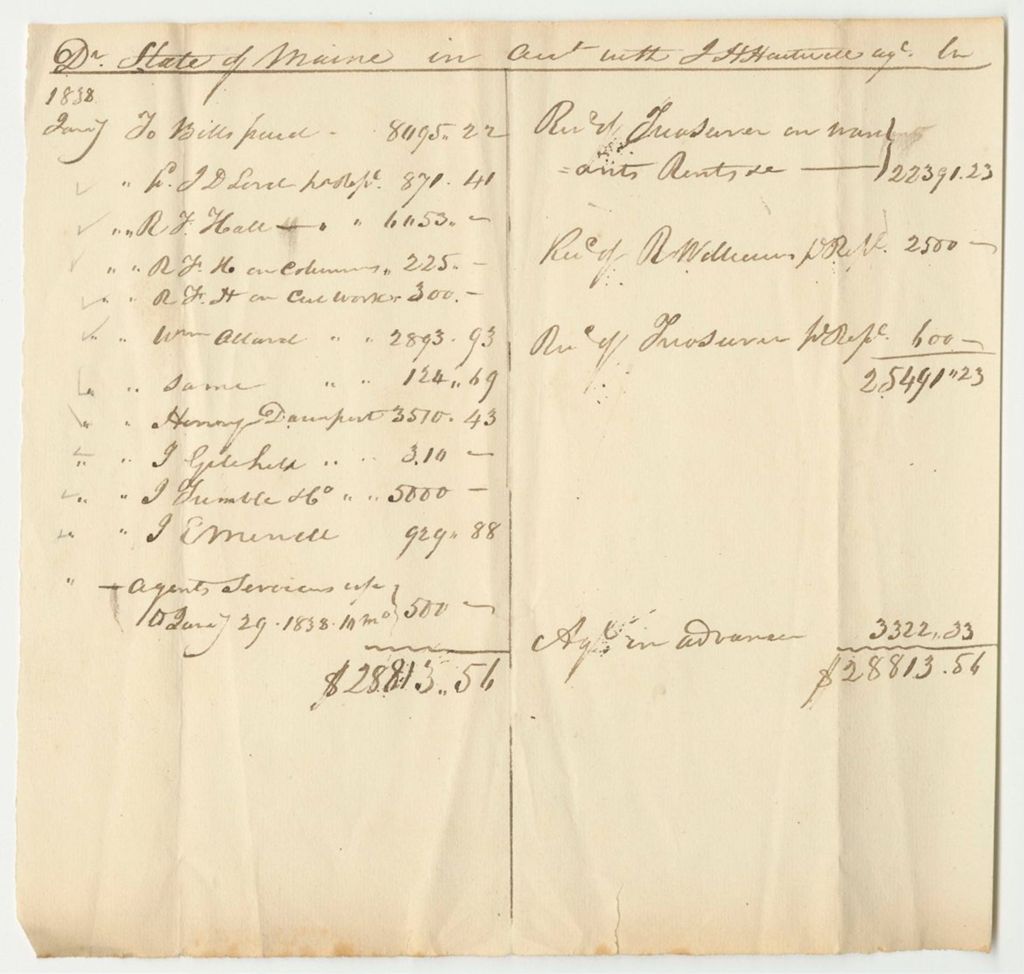 Dr. State of Maine in acct with J H Hartwell agt. Cr
1838
Jany To Bills paid - 8095.. 22
" " J D Lord pr Rept. 871. 41
" " R F Hall — " " 6053.. —
" " R F H on Columns " 225. —
" " R F. H on Cut work " 300. —
" " Wm Allard " " 2893. 93
" " Same " " 124.. 69
" " Henry Davenport 3510. 43
" " J Gilchell " " 310 —
" " J Trumble & Co " " 5000 —
" " J E Merrill 929.. 88
" — Agents Services up
to Jany 29. 1838. 10 mo } 500 —
$28813.. 56
Recd of Treasurer on warr
=ants Rents &c — } 22391.23
Recd of R Williams pr Rept. 2500 —
Recd of Treasurer pr Rept. 600 —
25491"23
Agt in advance 3322.. 33
$28813. 56